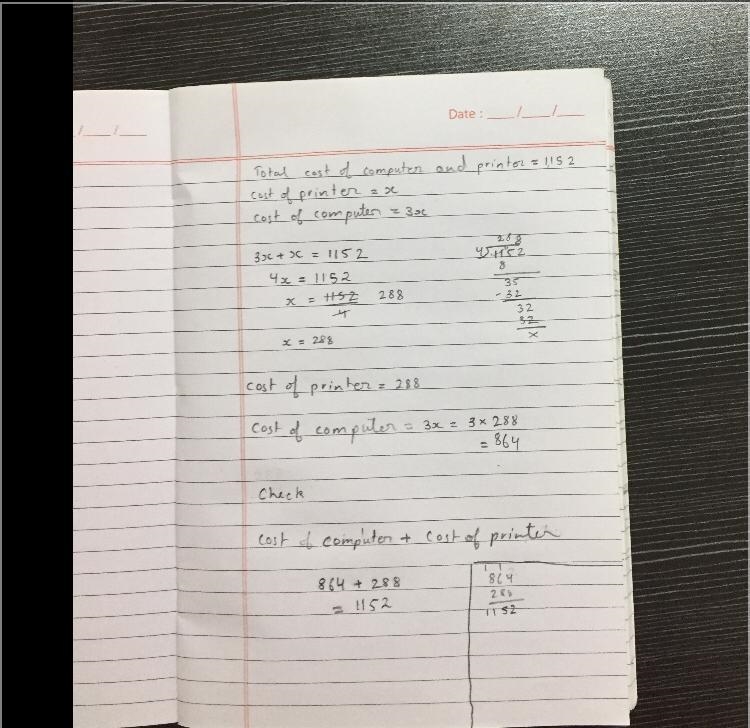 / /
Date : / /
Total cost of computer and printer = 1152
cost of printer = x
cost of computer = 3x
3x + x = 1152
4x = 1152
x = 1152 288
4
x = 288
288
4 1152
8
35
- 32
32
32
x
cost of printer = 288
cost of computer = 3x = 3 × 288
= 864
Check
cost of computer + cost of printer
864 + 288
= 1152
1 1
864
288
1152